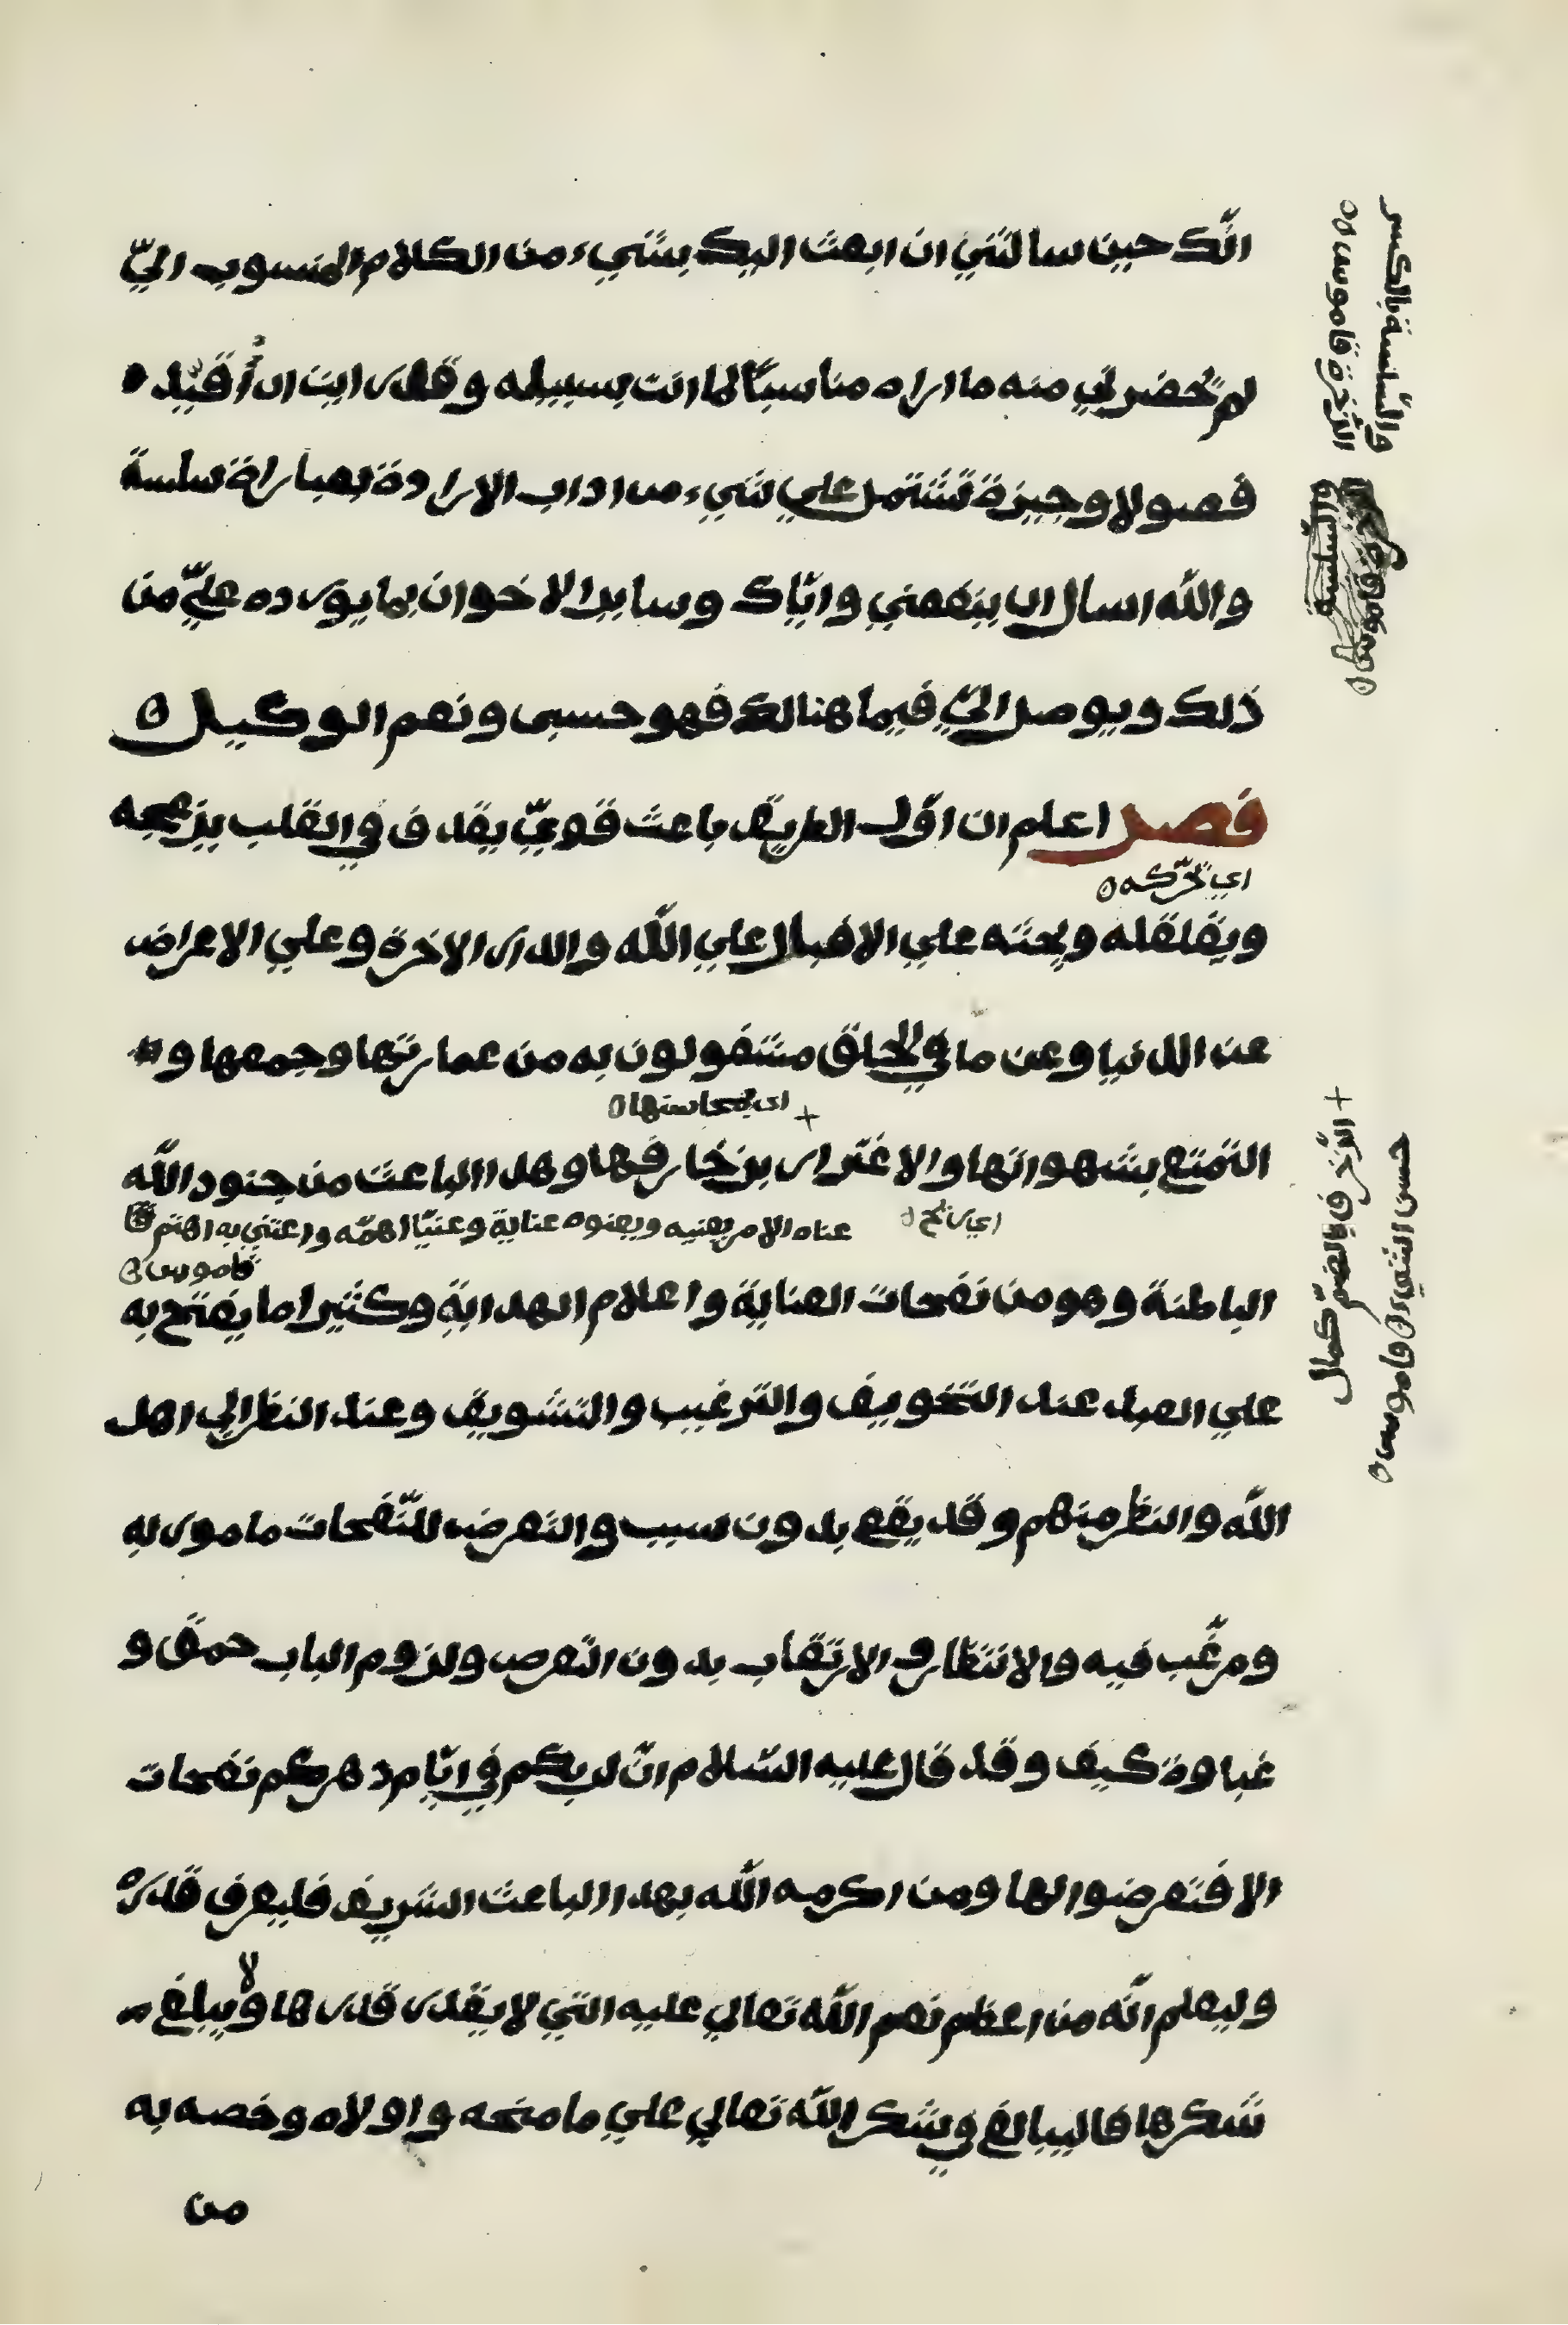 انّك حين سالتني ان ابعث اليك بشيء من الكلام المنسوب اليّ
لم يحضر لي منه ما اراه مناسبًا لما انت بسبيله وقد رايت ان أقيّد
فصولا وجيزة تشتمل علي شيء من اداب الارادة بعباراة سلسة
والله اسال ان ينفعني وايّاك وساير الاخوان بما يورده عليّ من
ذلك ويوصل اليّ فيما هنالك فهو حسبى ونعم الوكيل ه
فصل اعلم ان اوّل الطريق باعث قويّ يقذف في القلب يزعجه
اي يحرّكه ه
ويقلقله ويحثه علي الاقبال علي الله والدار الاخرة وعلي الاعراض
عن الدنيا وعن ما في الخلق مشغولون به من عمارتها وجمعها و
اى بمحاسنها ه +
التمتع بشهواتها والاغترار بزخارفها وهذا الباعث من جنود الله
اي ريح ه عناه الامر يعنيه ويعنوه عناية وعنيّا اهمّه واعتني به اهتم
قاموس ه
الباطنة وهو من نفحات العناية واعلام الهداية وكثيرا ما يفتح به
علي العبد عند التخويف والترغيب والتشويق وعند النظر الي اهل
الله والنظر منهم وقد يقع بدون سبب والتعرض للنّفحات مامور به
ومرغّب فيه والانتظار والارتقاب بدون التعرض ولزوم الباب حمق و
غباوة كيف وقد قال عليه السّلام انّ لربكم في ايّام دهركم نفحات
الا فتعرضوا لها ومن اكرمه الله بهذا الباعث الشريف فليعرف قدره
وليعلم انّه من اعظم نعم الله تعالي عليه التي لا يقدر قدرها ولا يبلغ
شكرها فاليبالغ في شكر الله تعالي علي ما منحه واولاه وخصه به
من
والسّلسة بالكسر
قاموس ه
السلسة
+ الزّخرف بالضّم كمال
حسن الشيء ه قاموس ه